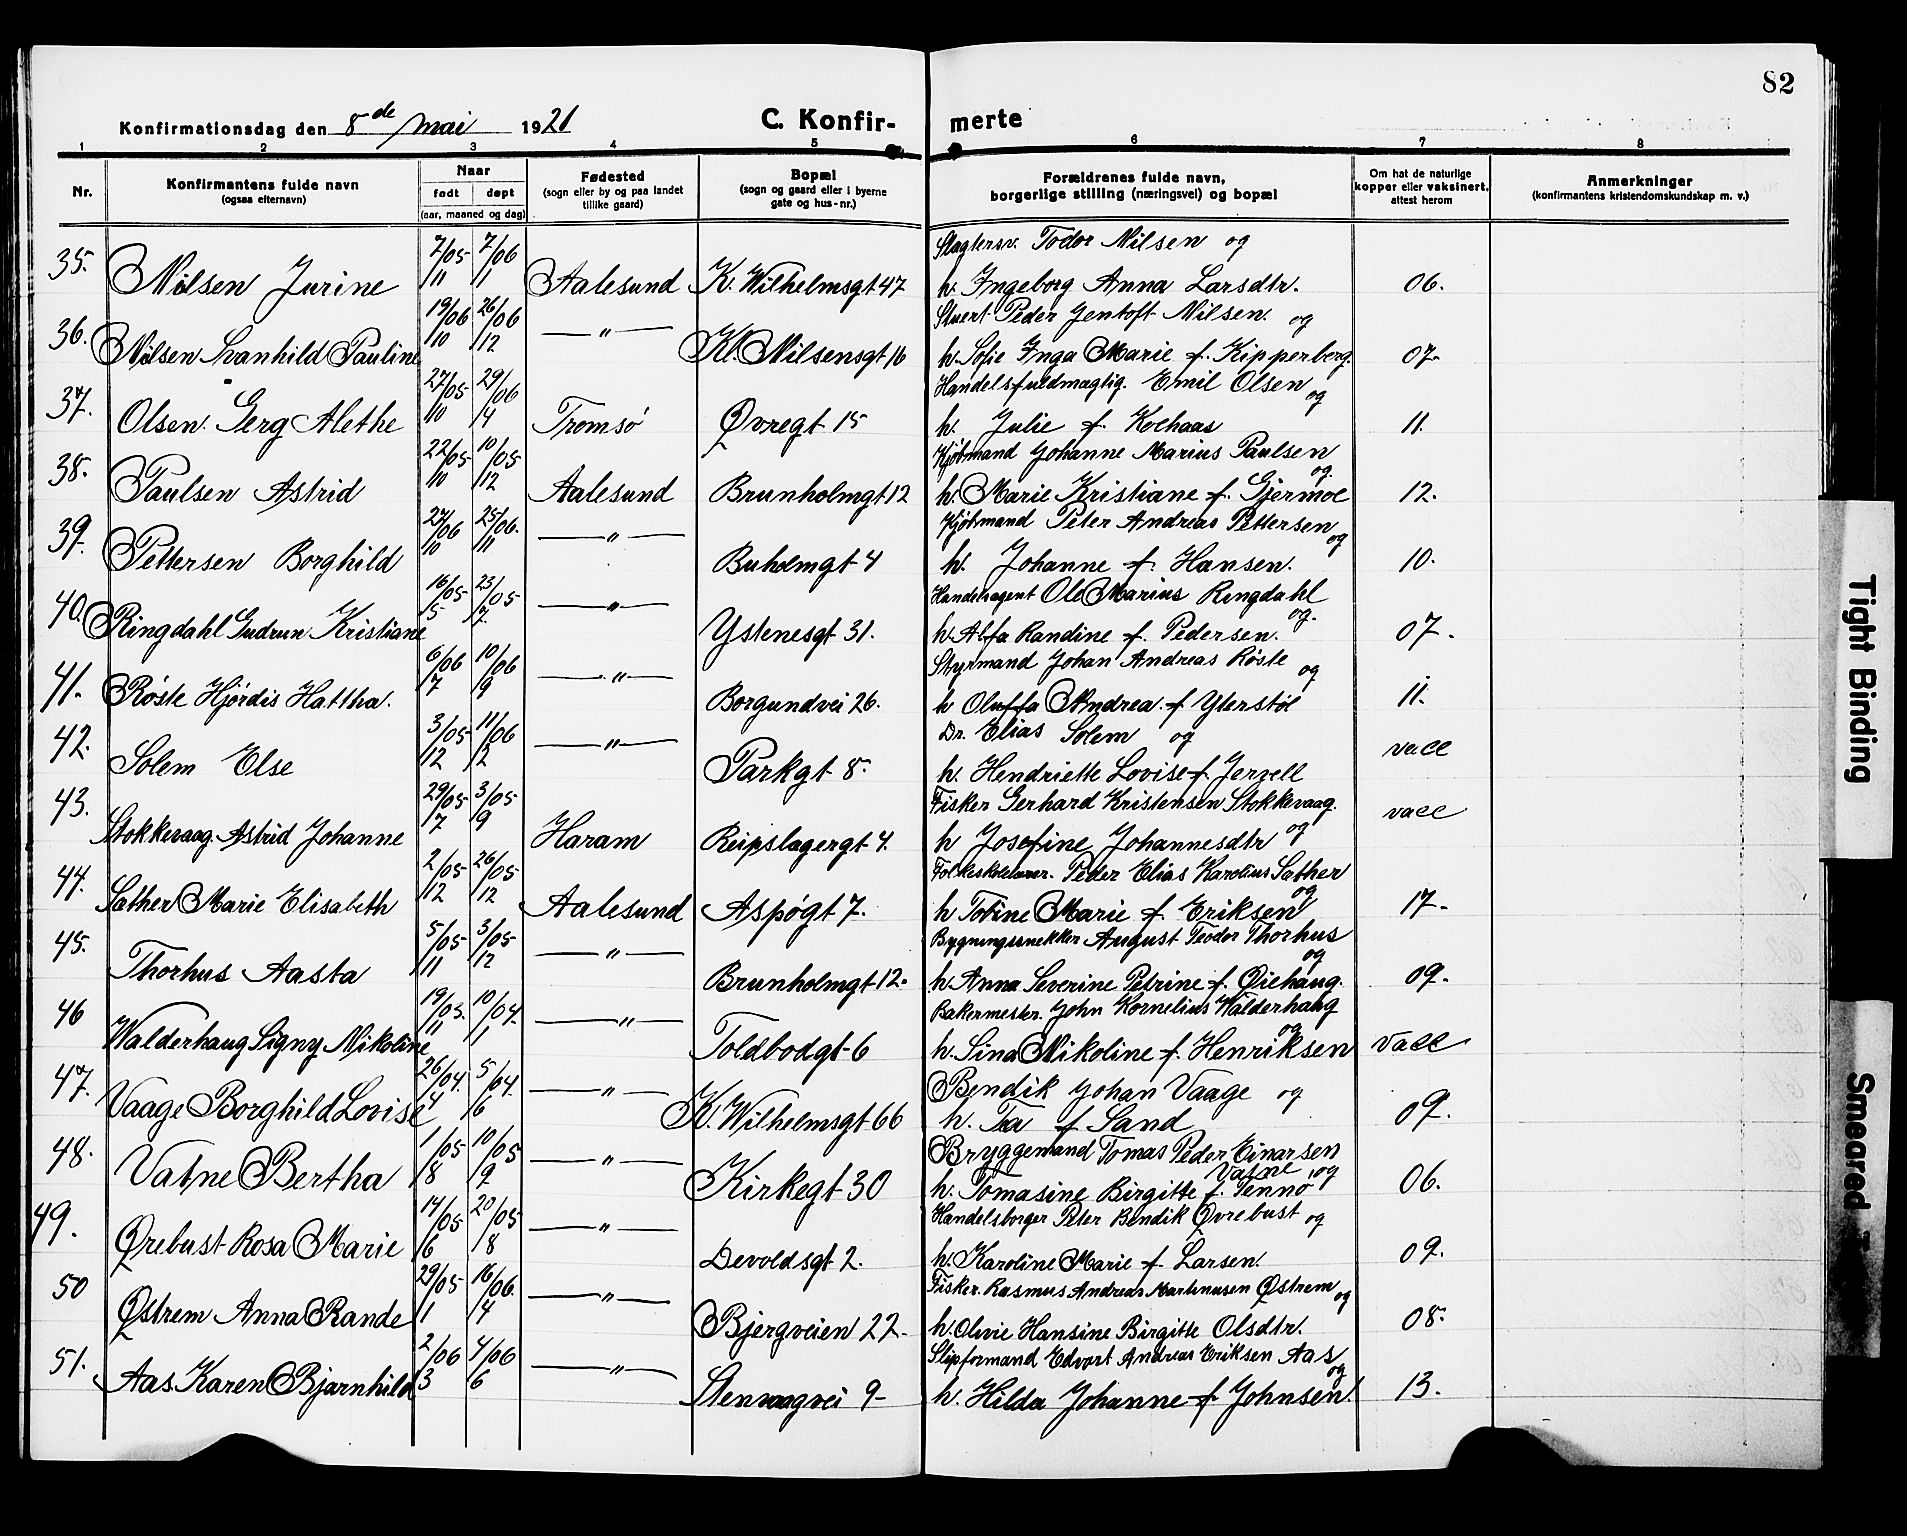 82
Konfirmationsdag den 8de mai 1921 C. Konfir- merte
1 2 3 4 5 6 7 8
Nr.
Konfirmantens fulde navn
(ogsaa efternavn)
Naar
født døpt
(aar, maaned og dag)
Fødested
(sogn eller by og paa landet
tillike gaard)
Bopæl
(sogn og gaard eller i byerne
gate og hus-nr.)
Forældrenes fulde navn,
borgerlige stilling (næringsvei) og bopæl
Om hat de naturlige
kopper eller vaksinert,
attest herom
Anmerkninger
(konfirmantens kristendomskundskap m. v.)
35. Nilsen Jurine 7/11 05 7/1 06 Aalesund K. Wilhelmsgt 47 Slagtersv. Todor Nilsen og
h. Ingeborg Anna Larsdtr. 06.
36. Nilsen Svanhild Pauline 19/10 06 26/12 06 —"— Kl. Nilsensgt 16 Stuert Peder Jentoft Nilsen. og
h. Sofie Inga Marie f. Kipperberg. 07.
37. Olsen Gerg Alethe 27/10 05 29/4 06 Tromsø Øvregt 15 Handelsfuldmægtig. Emil Olsen og
h. Julie f. Kochaas 11.
38. Paulsen Astrid 22/10 05 10/12 05 Aalesund Brunholmgt 12 Kjøbmand Johanne Marius Paulsen og
h. Marie Kristiane f. Gjermoe 12.
39. Pettersen Borghild 27/10 06 25/11 06. —"— Buholmgt 4 Kjøbmand Peter Andreas Pettersen og
h. Johanne f. Hansen. 10.
40. Ringdahl Gudrun Kristiane 16/5 05 23/7 05 —"— Ystenesgt 31. Handelsagent Ole Marius Ringdahl og.
h. Alfa Randine f. Pedersen. 07.
41. Røste Hjørdis Hattha. 6/7 06 10/9 06 —"— Borgundvei 26. Styrmand Johan Andreas Røste og
h Oluffa Andrea f Yterstøl 11.
42. Solem Else 3/12 05 11/2 06 —"— Parkgt 8. Dr. Elias Solem og
h. Hendriette Lovise f. Jervell vacc
43. Stokkevaag Astrid Johanne 29/7 05 3/9 05 Haram Reipslagergt 4. Fisker Gerhard Kristensen Stokkevaag. og
h Josefine Johannesdtr vacc
44. Sæther Marie Elisabeth 2/12 05 26/12 05 Aalesund Aspøgt 7. Peder Elias Karolius Sæther og
h Tovine Marie f. Eriksen 17.
45. Thorhus Aasta 5/11 05 3/12 05 —"— Brunholmgt 12. Bygningssnekker August Teodor Thorhus og
h. Anna Severine Petrine f. Øiehaug. 09.
46 Walderhaug Signy Nikoline 19/11 03. 10/1 04. —"— Toldbodgt 6 Bakermester. John Kornelius Walderhaug og
h. Sina Nikoline f. Henriksen vacc
47. Vaage Borghild Lovise 26/4 04. 5/6 04. —"— K. Wilhelmsgt 66 Bendik Johan Vaage og
h. Tea f Sand 09.
48. Vatne Bertha 1/8 05 10/9 05 —"— Kirkegt 30 Bryggemand Tomas Peder Einarsen
Vatne og
h. Tomasine Birgitte f. Tennø 06.
49. Ørebust Rosa Marie 14/6 05 20/8 05 —"— Devoldsgt 2. Handelsborger Peter Bendik Øvrebust og
h. Karoline Marie f. Larsen. 09.
50 Østrem Anna Rande 29/1 05 16/4 06. —"— Bjergveien 22. Fisker. Rasmus Andreas Martinusen Østrem og
h. Olivie Hansine Birgitte Olsdtr. 08.
51. Aas. Karen Bjarnhild 2/3 06 4/6 06 —"— Stenvaagvei 9- Slipformand Edvart Andreas Eriksen Aas og
h. Hilda Johanne f. Johnsen. 13.
Tight Binding
Smeared